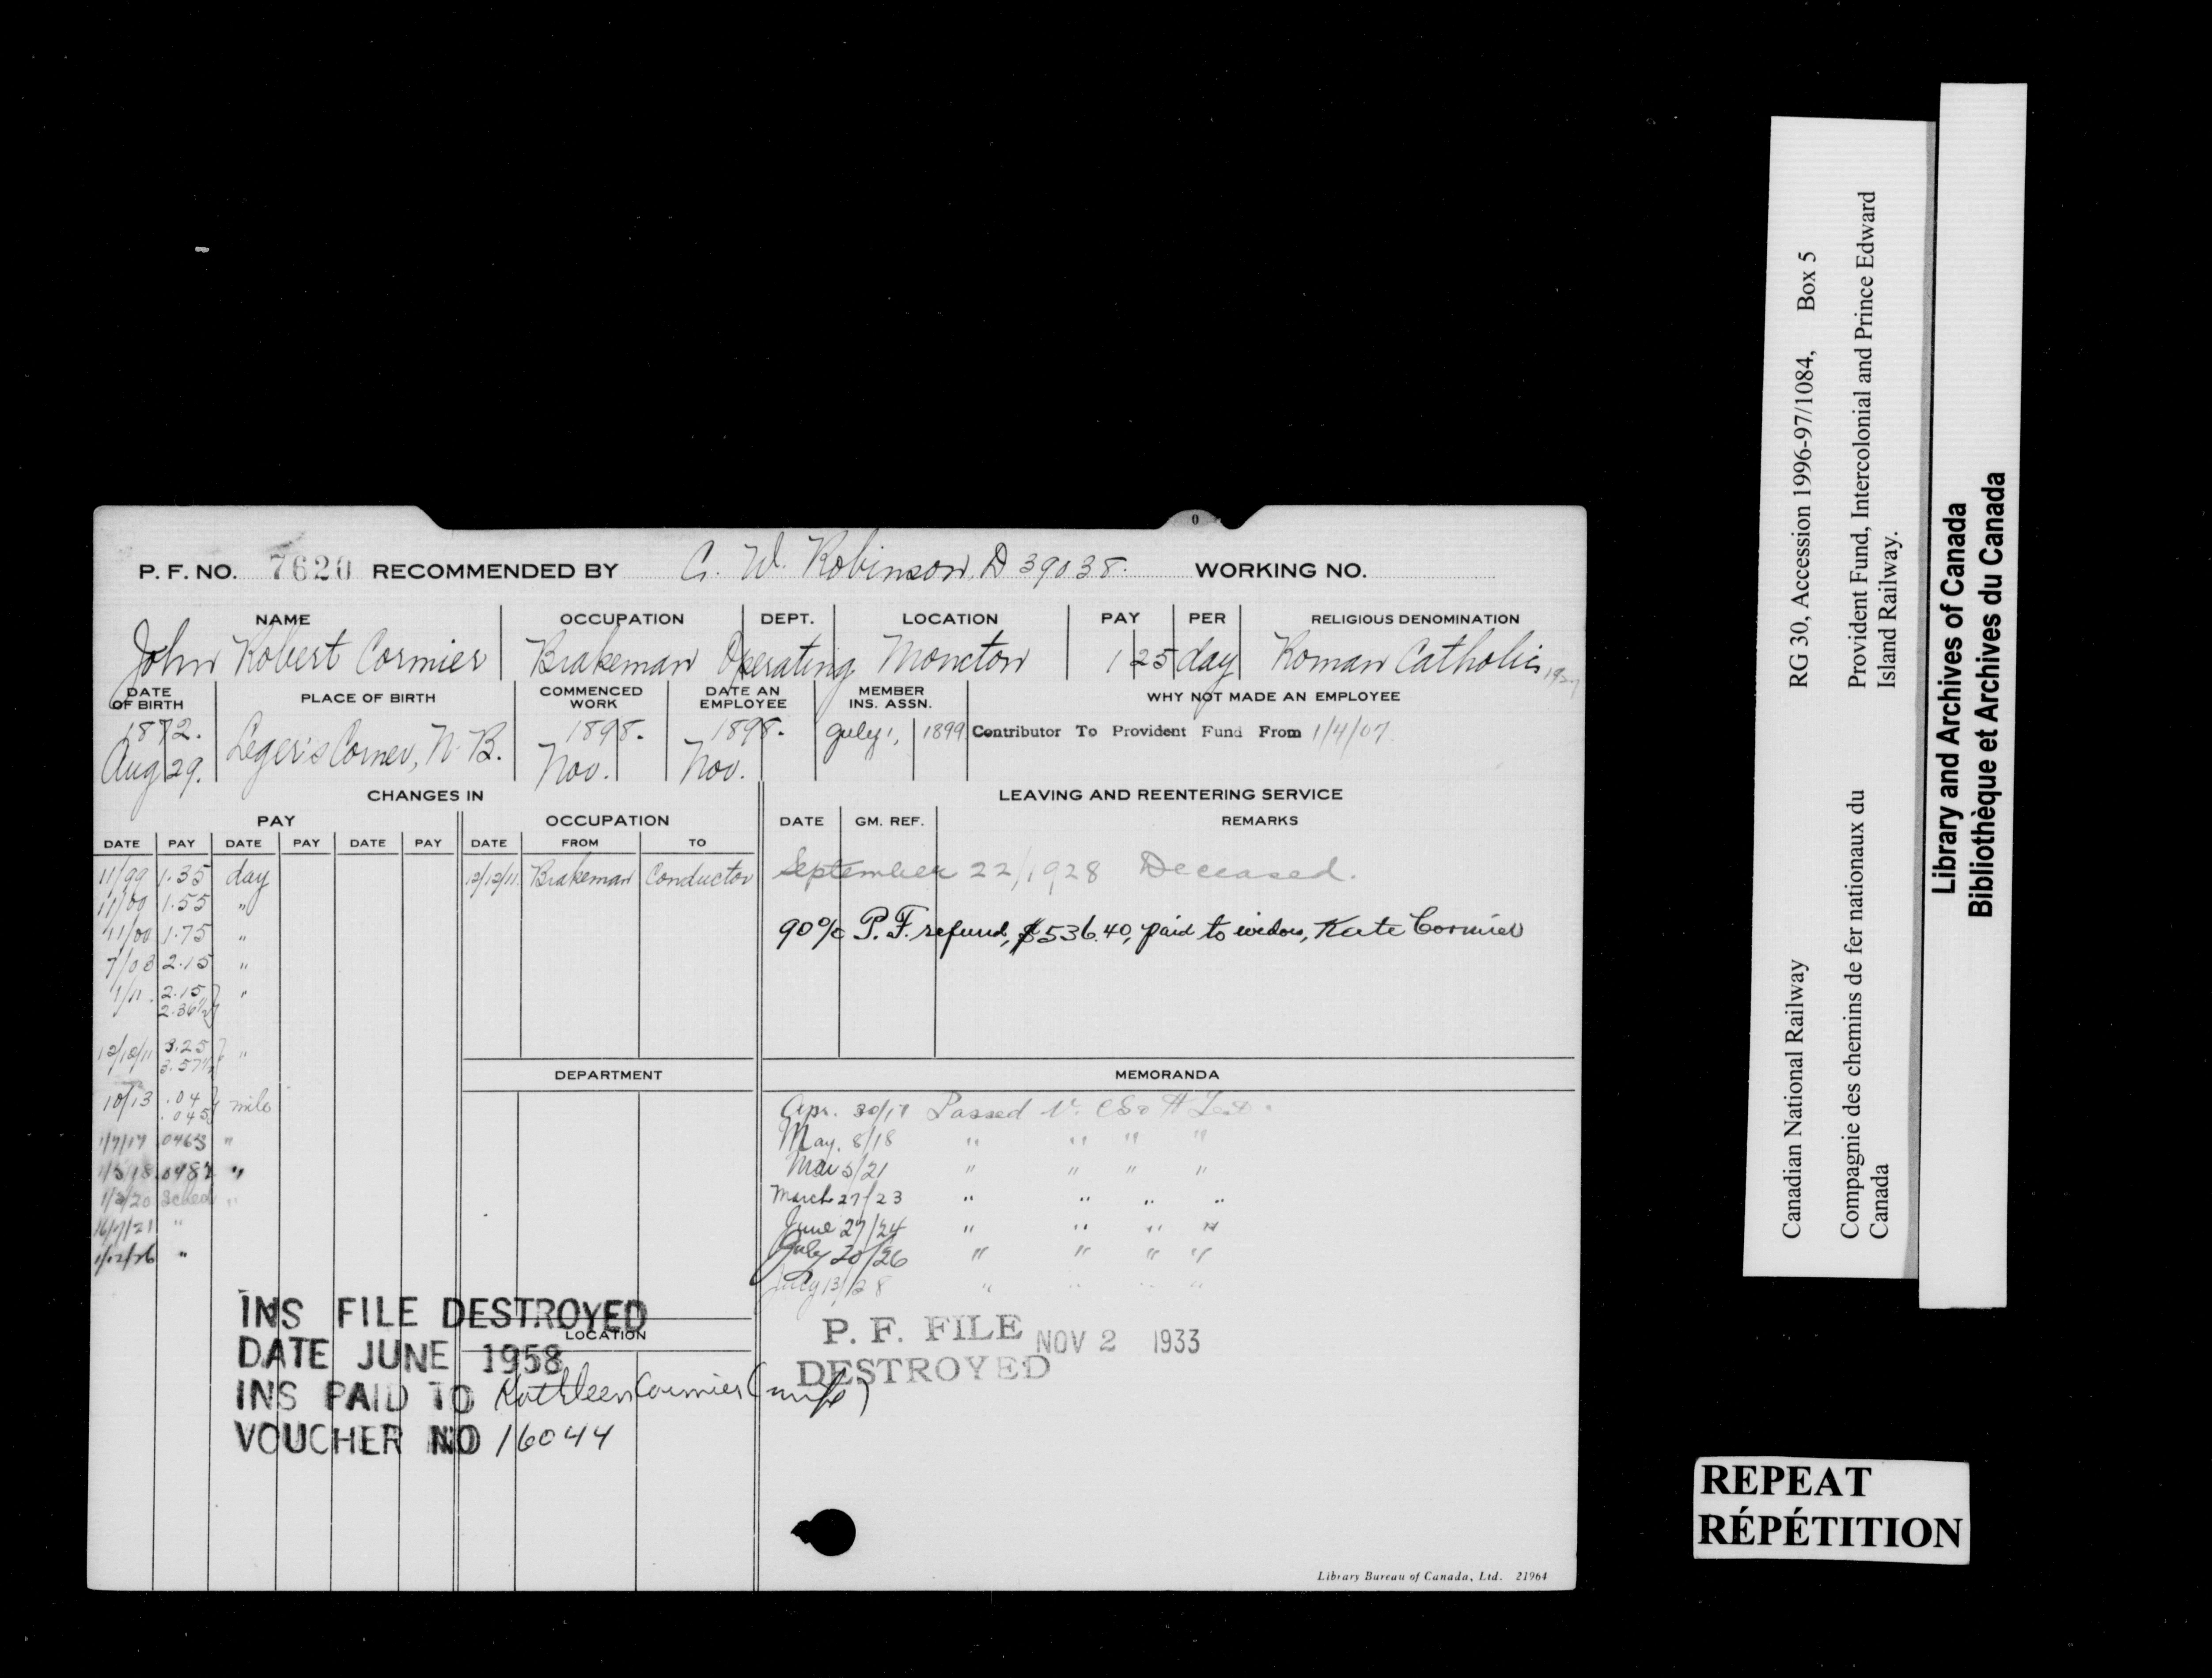 P. F. NO. 7620 RECOMMENDED BY C. W. Robinson. D 39038. WORKING NO.
NAME OCCUPATION DEPT. LOCATION PAY PER RELIGIOUS DENOMINATION
John Robert Cormier Brakeman Operating Moncton 1 25 day Roman Catholic
DATE OF BIRTH PLACE OF BIRTH COMMENCED WORK DATE AN EMPLOYEE MEMBER INS. ASSN. WHY NOT MADE AN EMPLOYEE
1872. Aug 29. Leger's Corner, N. B. 1898. Nov. 1898. Nov. July 1, 1899 Contributor To Provident Fund From 1/4/07.
CHANGES IN
PAY OCCUPATION
DATE PAY DATE PAY DATE PAY DATE FROM TO
11/99 1.35 day 12/12/11 Brakeman Conductor
11/00 1.55 "
11/00 1.75 "
7/08 2.15 "
1/11 2.15 "
2.36½
12/12/11 3.25 "
3.57½
10/13 .04 mile
.045
1/7/17 .0463 "
1/5/18 .0482 "
1/3/20 Sched "
16/7/21 "
1/12/26 "
DEPARTMENT
LOCATION
INS FILE DESTROYED
DATE JUNE 1958
INS PAID TO Kathleen Cormier (wife)
VOUCHER NO 16044
LEAVING AND REENTERING SERVICE
DATE GM. REF. REMARKS
September 22/1928 Deceased.
90% P.F. refund, $536.40, paid to widow, Kate Cormier
MEMORANDA
Apr. 30/17 Passed V. CS & H Test.
May. 8/18 " " " "
Mar 5/21 " " " "
March 27/23 " " " "
June 27/24 " " " "
July 20/26 " " " "
July 13/28 " " " "
P. F. FILE
DESTROYED
NOV 2 1933
Library Bureau of Canada, Ltd. 21964
RG 30, Accession 1996-97/1084, Box 5
Provident Fund, Intercolonial and Prince Edward
Island Railway.
Canadian National Railway
Compagnie des chemins de fer nationaux du
Canada
Library and Archives of Canada
Bibliothèque et Archives du Canada
REPEAT
RÉPÉTITION